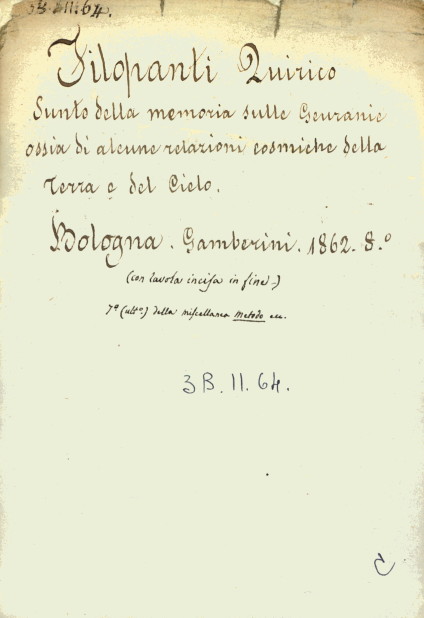 3B.II.64.
Filopanti Quirico
Sunto della memoria sulle Geuranie
ossia di alcune relazioni cosmiche della
Terra e del Cielo.
Bologna. Gamberini. 1862. 8.º
(con tavola incisa in fine.)
7ª (ultª.) della miscellanea Metodo ecc.
3B.II.64.
C